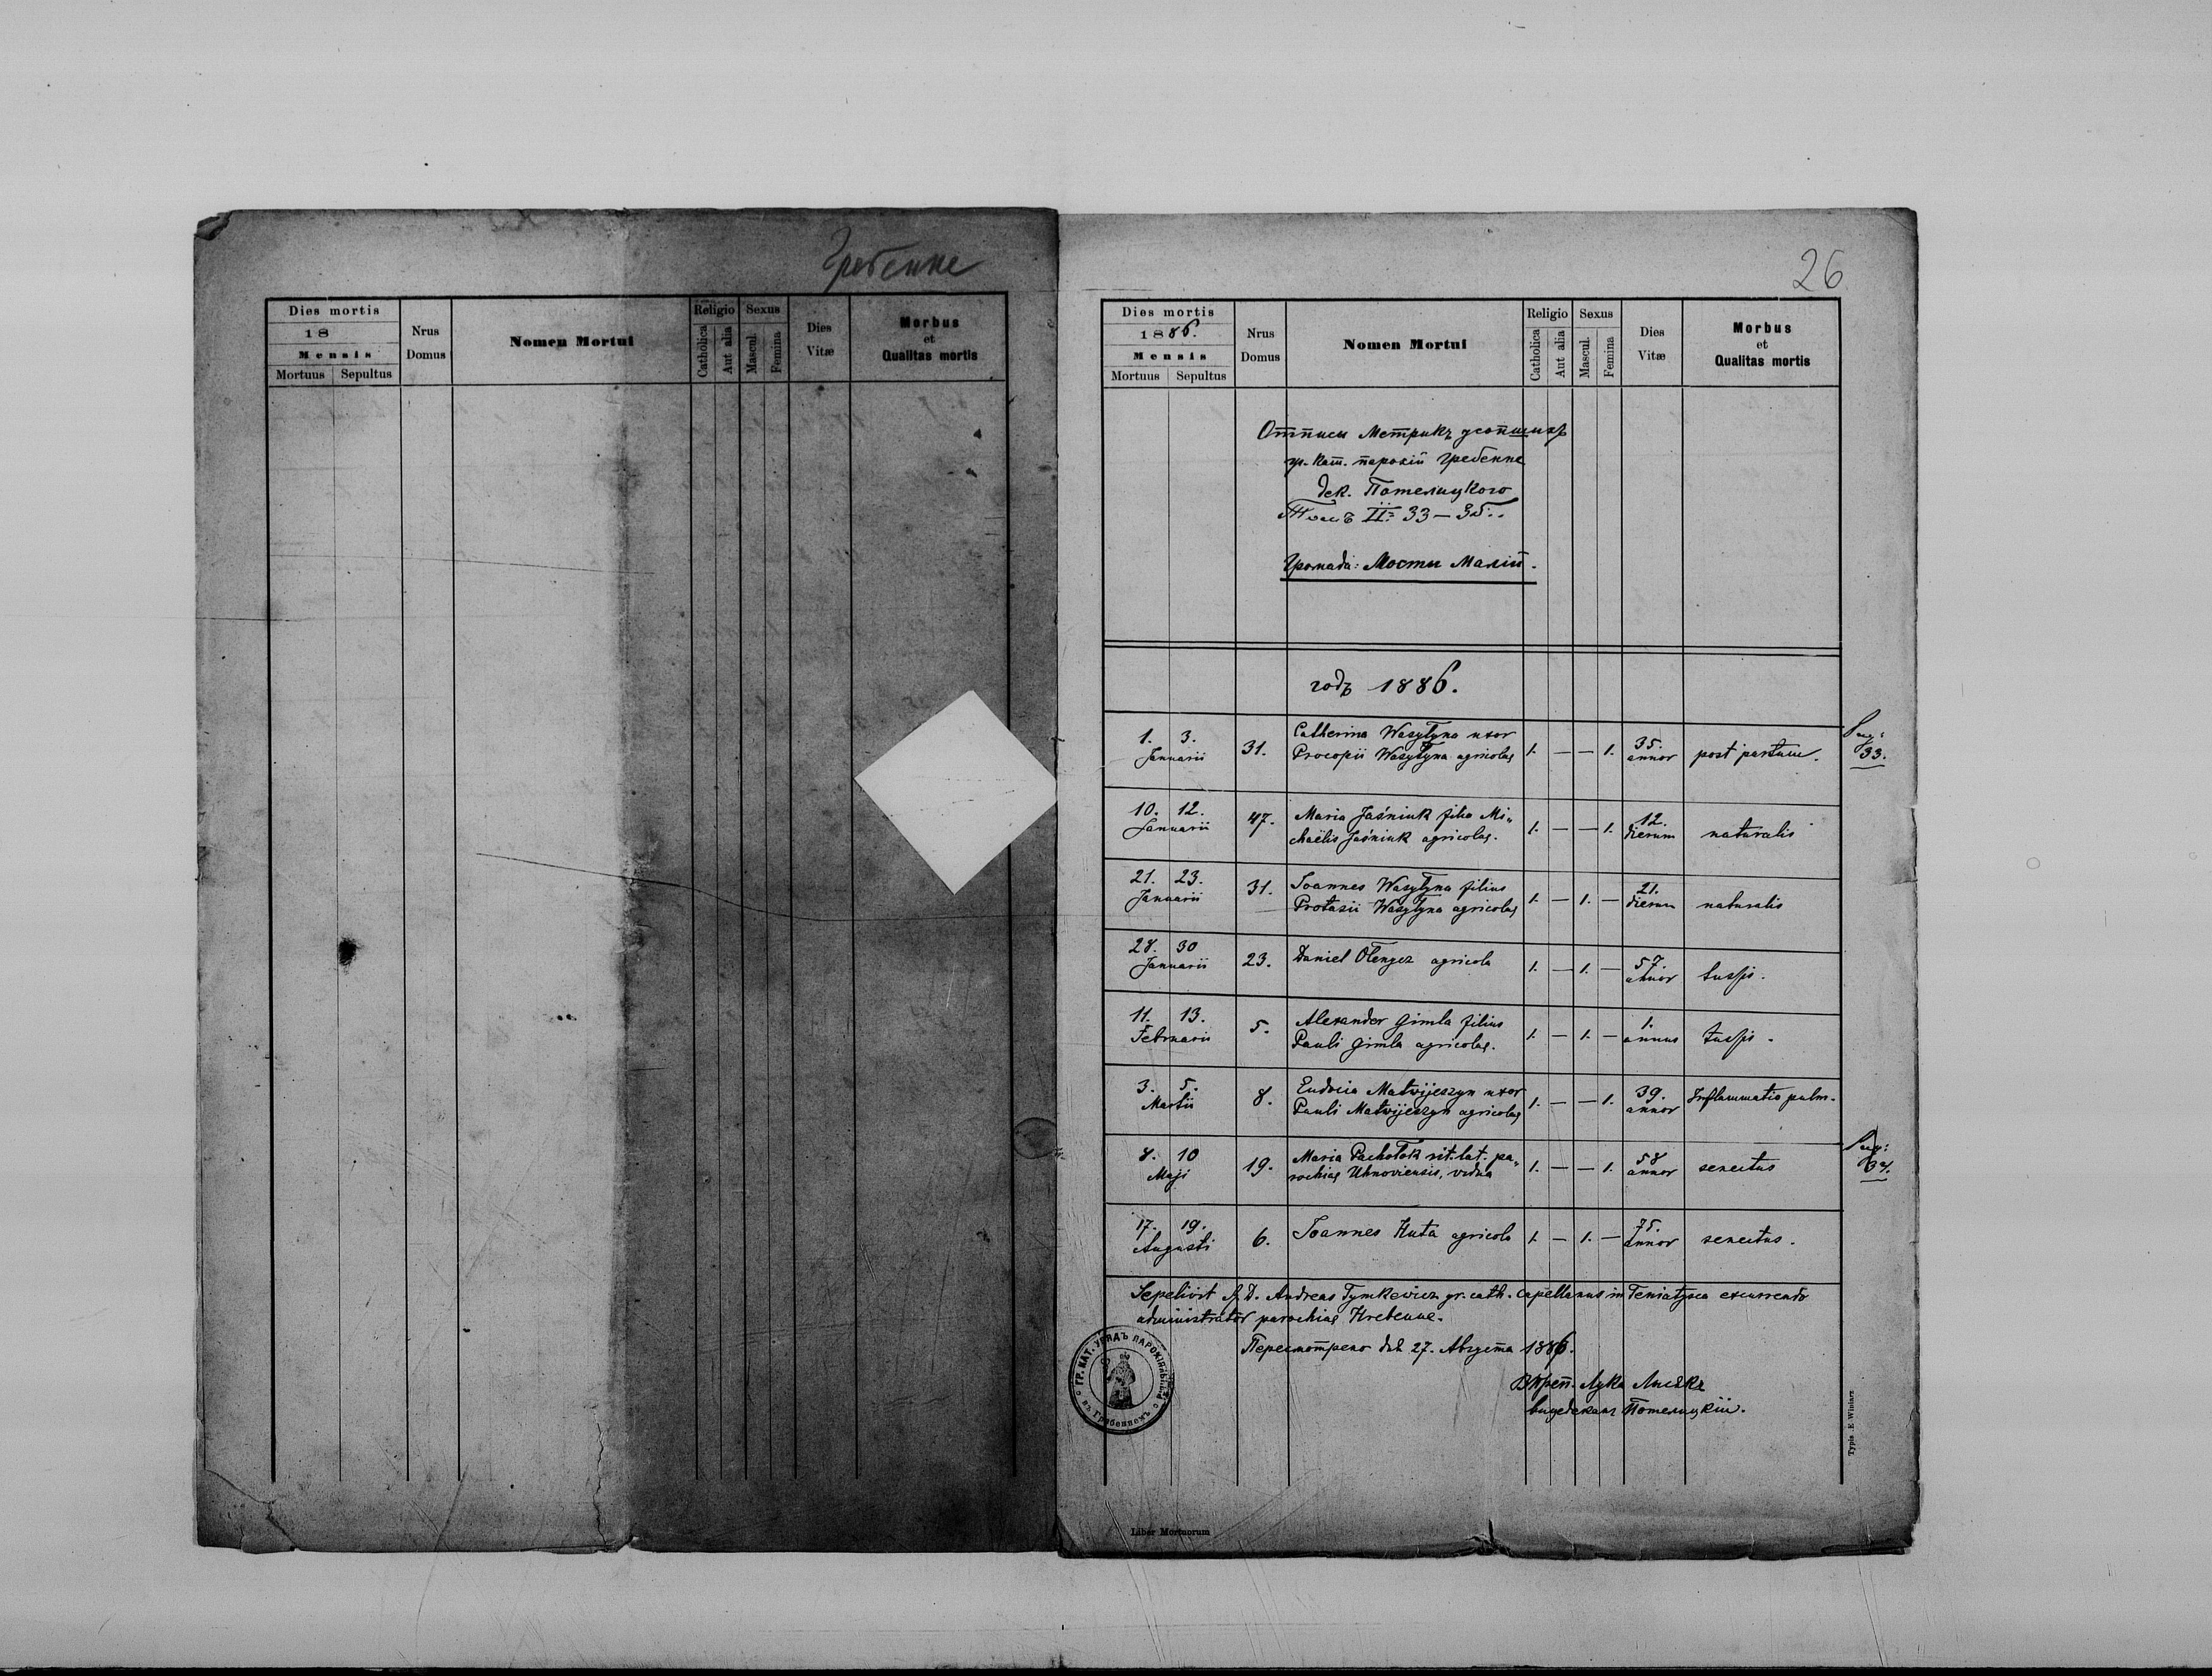 Гребенне
Dies mortis
18
Mensis
Mortuus Sepultus
Nrus Domus
Nomen Mortui
Religio
Catholica Aut alia
Sexus
Mascul. Femina
Dies Vitæ
Morbus et Qualitas mortis
26
Dies mortis
1886.
Mensis
Mortuus Sepultus
Nrus Domus
Nomen Mortui
Religio
Catholica Aut alia
Sexus
Mascul. Femina
Dies Vitæ
Morbus et Qualitas mortis
Отписы Метрикъ усопшихъ
гр. кат. парохіи Гребенне
дек. Потелицкого
Томъ II.
Громада: Мосты Маліи.
годъ 1886.
1. 3. Januarii 31. Catherina Wasyłyna uxor
Procopii Wasyłyna agricolae 1. — — 1. 35. annor post partum. Pag: 33.
10. 12. Januarii 47. Maria Jaśniuk filia Mi„
chaëlis Jaśniuk agricolae. 1. — — 1. 12. dierum naturalis
21. 23. Januarii 31. Joannes Wasyłyna filius
Protasii Wasyłyna agricolae 1. — 1. — 21. dierum naturalis
28. 30 Januarii 23. Daniel Ołenycz agricola 1. — 1. — 57. annor tussis.
11. 13. Februarii 5. Alexander Gimla filius
Pauli Gimla agricolae. 1. — 1. — 1. annus tussis.
3. 5. Martii 8. Eudocia Matwijeszyn uxor
Pauli Matwijeszyn agricolae 1. — — 1. 39. annor Inflammatio pulm.
8. 10 Maji 19. Maria Pachołok rit. lat. pa„
rochiae Uhnoviensis, vidua 1. — — 1. 58 annor senectus Pag: 34.
17. 19. Augusti 6. Joannes Huta agricola 1. — 1. — 75. annor senectus.
Sepelivit A. D. Andreas Tymkewicz gr. cath. capellanus in Teniatyska excurrendo
administrator parochiae Hrebenne.
Пересмотрено дня 27. Августа 1886.
Лука Лисякъ
вицедеканъ Потелицкій.
ГР. КАТ. УРЯДЪ ПАРОХІЯЛЬНЫЙ
въ Гребенномъ
Typis E. Winiarz
Liber Mortuorum